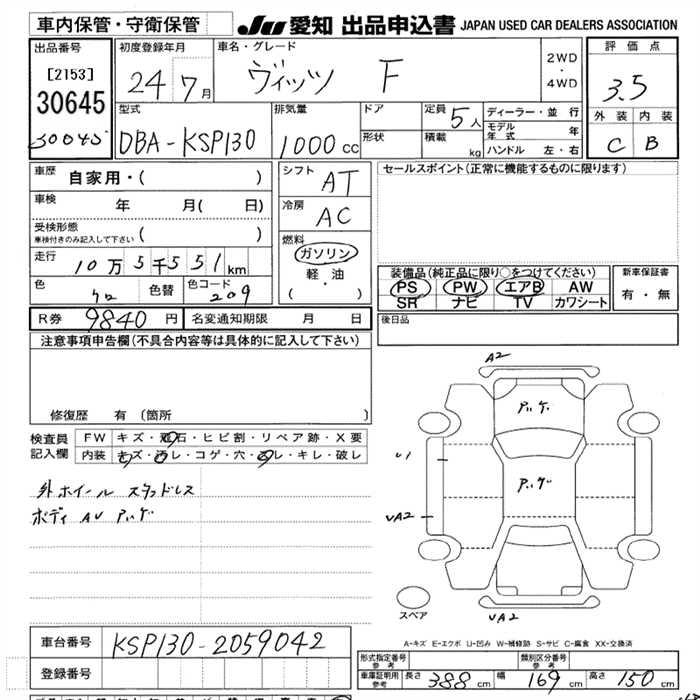 車内保管・守衛保管
JU 愛知 出品申込書 JAPAN USED CAR DEALERS ASSOCIATION
出品番号 初度登録年月 車名・グレード 2WD・4WD 評価点
[2153] 24年7月 ヴィッツ F 3.5
30645
30645 型式 排気量 ドア 定員 5人 ディーラー・並行 外装 内装
DBA-KSP130 1000cc 形状 積載 kg モデル年式 年 C B
ハンドル 左・右
車歴 自家用・( ) シフト AT セールスポイント(正常に機能するものに限ります)
車検 年 月( 日) 冷房 AC
受検形態 ( )
車検付きのみ記入して下さい
燃料 ガソリン 軽・油 ・( )
走行 10万5千551km
装備品(純正品に限り○をつけてください) 新車保証書
PS PW エアB AW 有・無
SR ナビ TV カワシート
色 クロ 色替 色コード 209
R券 9840円 名変通知期限 月 日 後日品
注意事項申告欄(不具合内容等は具体的に記入して下さい)
修復歴 有 (箇所 )
検査員記入欄 FW キズ・飛石・ヒビ割・リペア跡・X要
内装 キズ・汚レ・コゲ・穴・スレ・キレ・破レ
外ホイール スタッドレス
ボディ AU アバゲ
A2
U1
UA2
UA2
スペア
A-キズ E-エクボ U-凹み W-補修跡 S-サビ C-腐食 XX-交換済
車台番号 KSP130-2059042
登録番号
形式指定番号 参考 類別区分番号 参考
車庫証明用 参考 長さ 388cm 幅 169cm 高さ 150cm